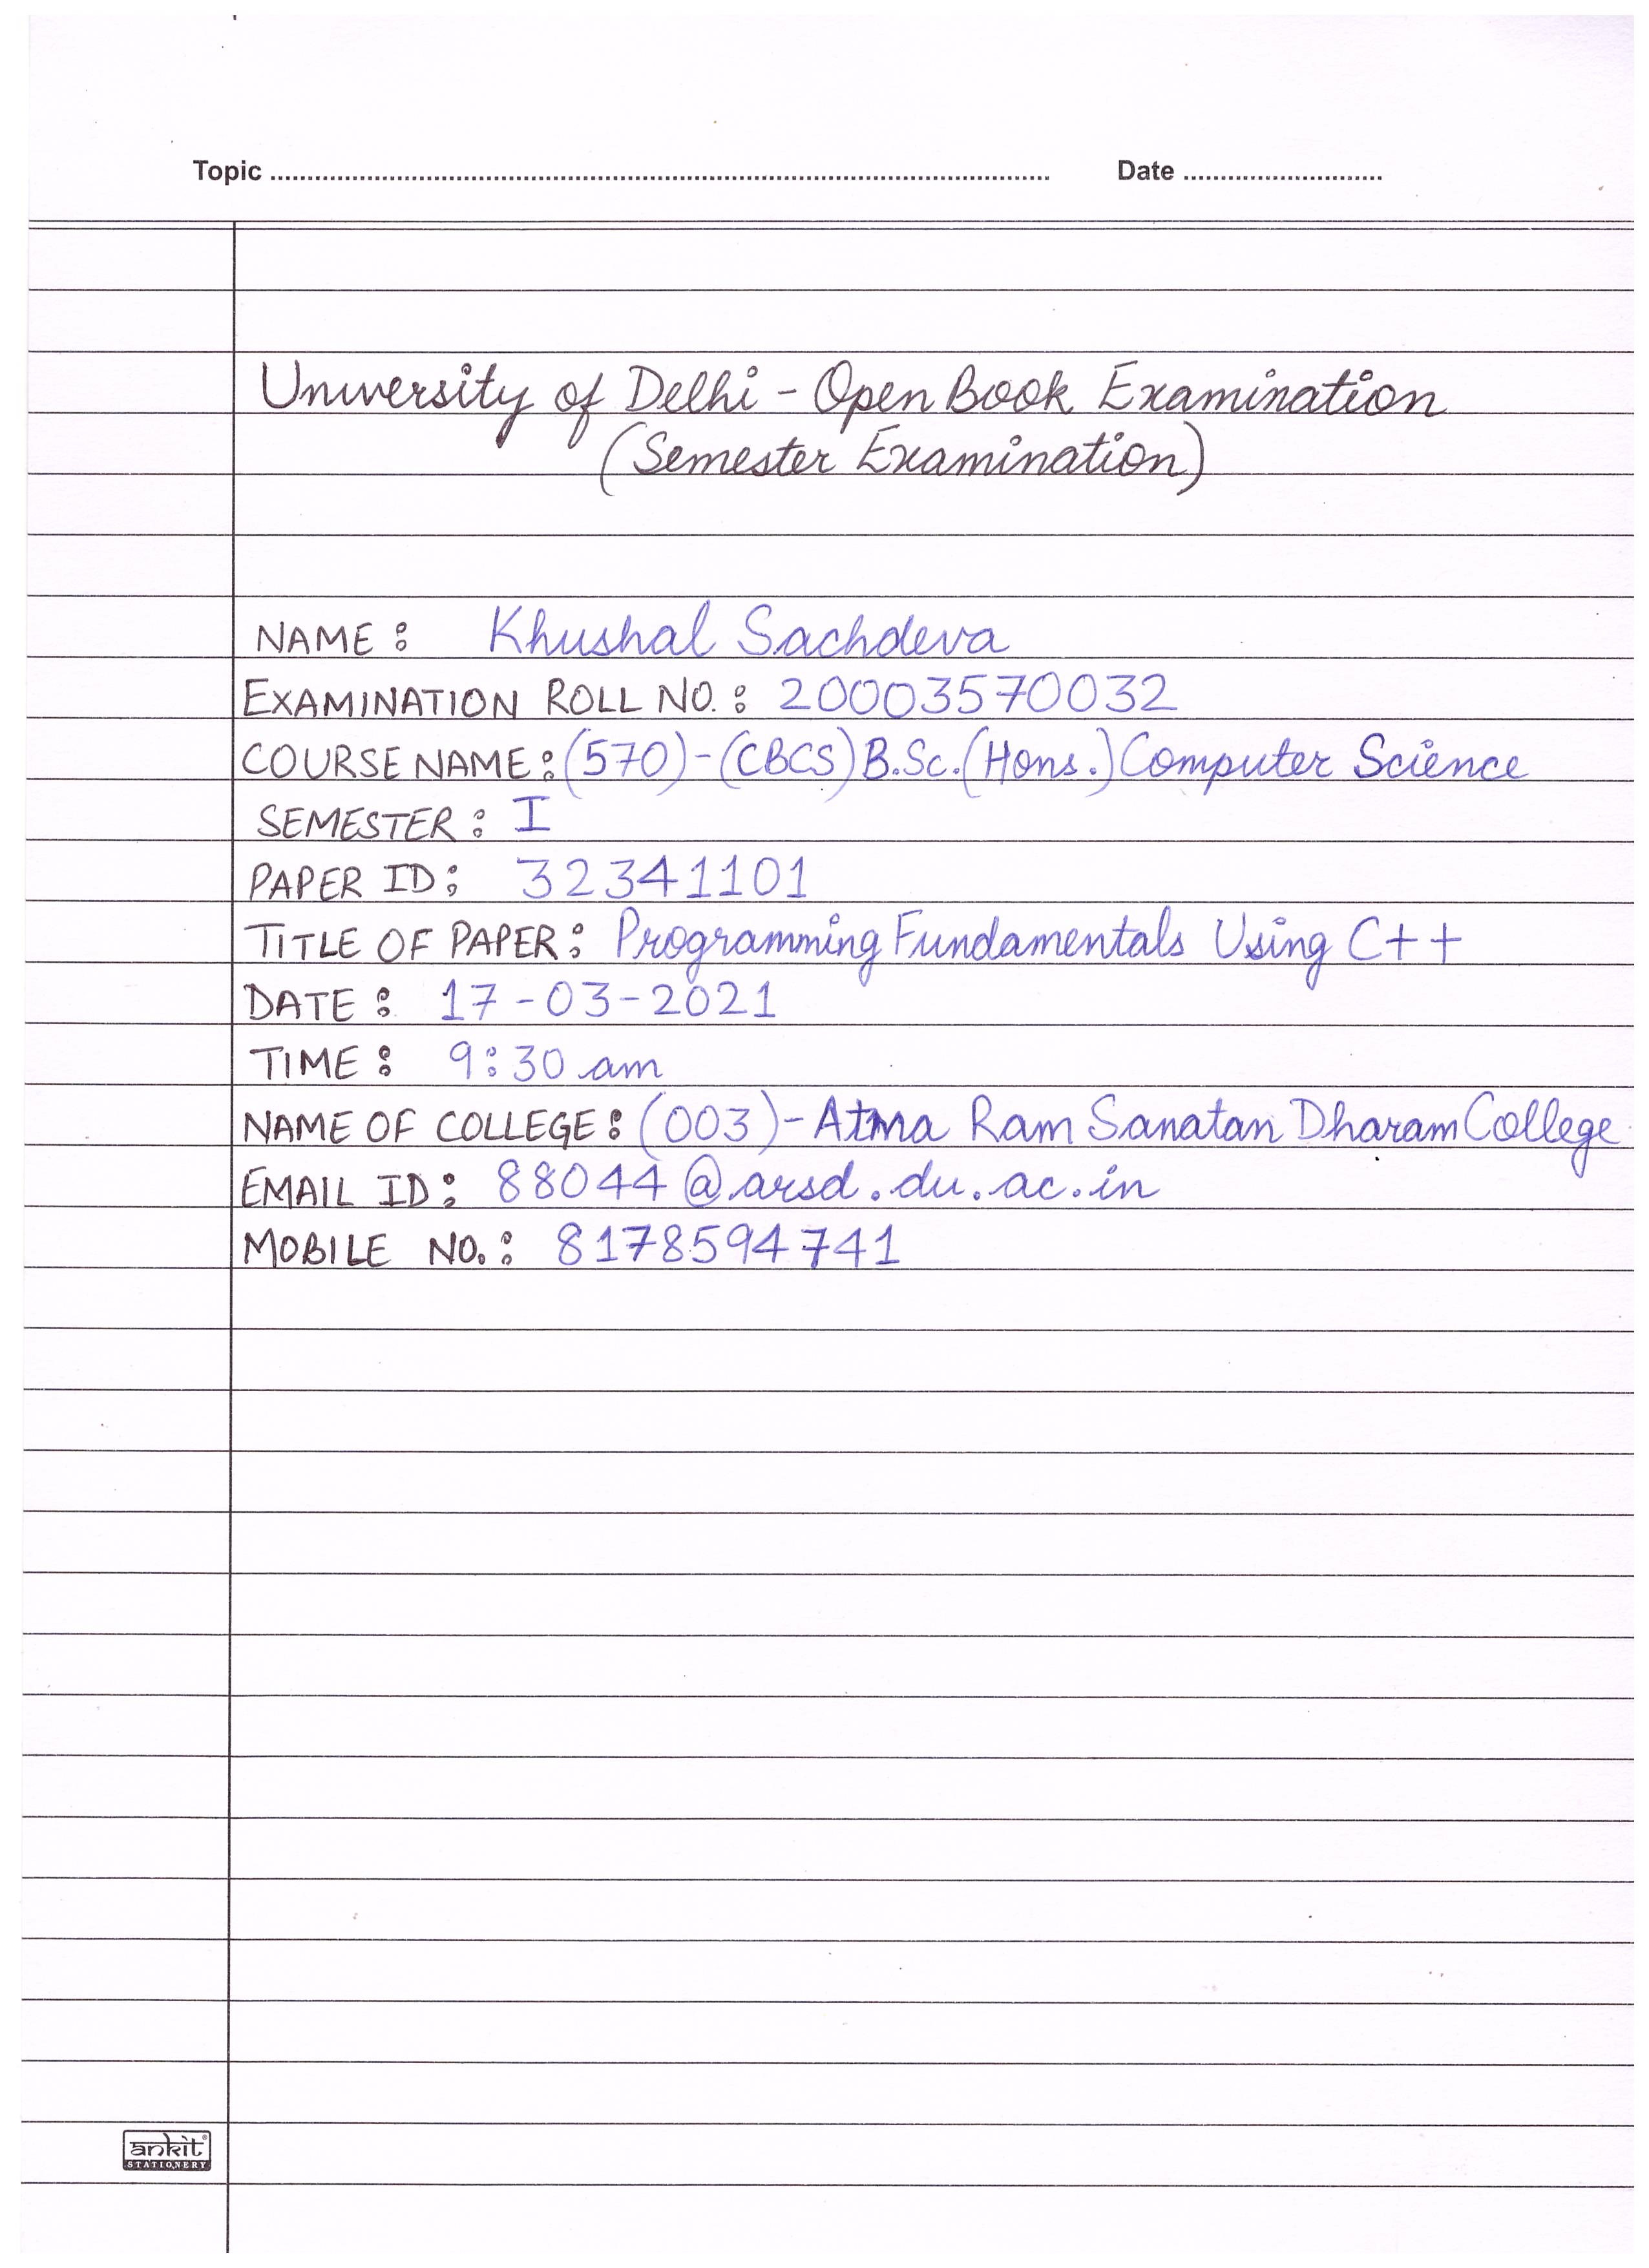 Topic ............................................................ Date ...........................
University of Delhi - Open Book Examination
(Semester Examination)
NAME : Khushal Sachdeva
EXAMINATION ROLL NO. : 20003570032
COURSE NAME : (570)-(CBCS) B.Sc. (Hons.) Computer Science
SEMESTER : I
PAPER ID : 32341101
TITLE OF PAPER : Programming Fundamentals Using C++
DATE : 17-03-2021
TIME : 9:30 am
NAME OF COLLEGE : (003)-Atma Ram Sanatan Dharam College
EMAIL ID : 88044@arsd.du.ac.in
MOBILE NO. : 8178594741
ankit
STATIONERY